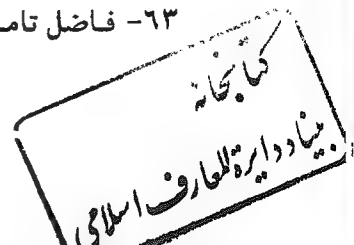 ٦٣- فاضل تامـ
كتابخانه
بنیاد دایرة المعارف اسلامی